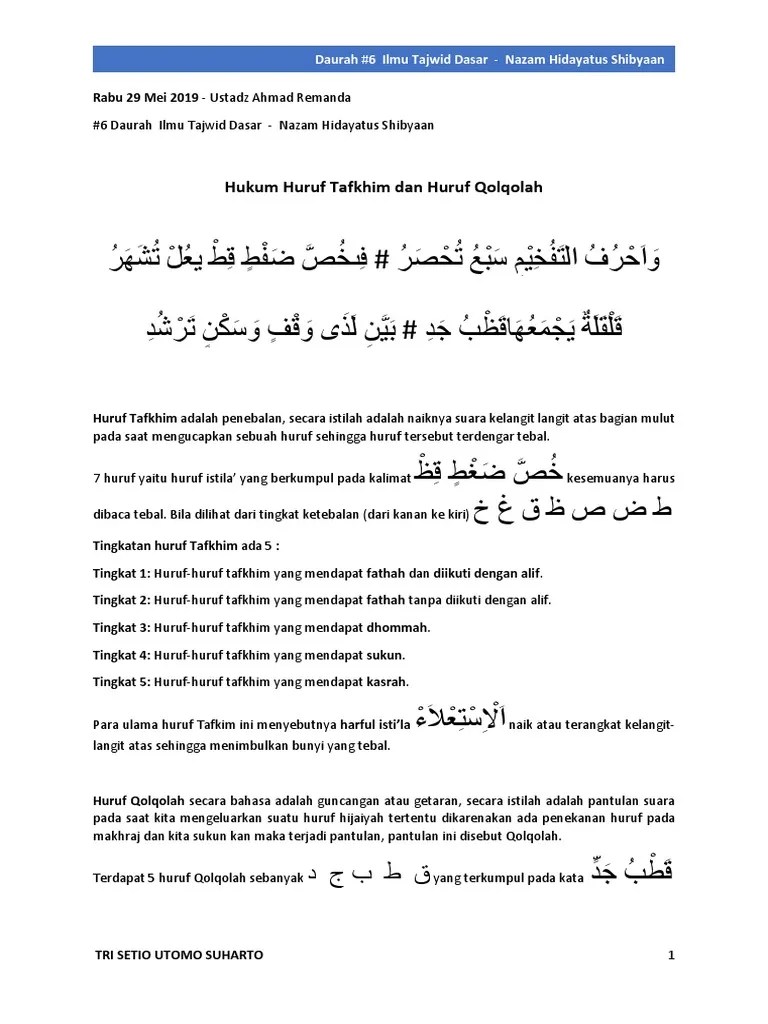 Daurah #6 Ilmu Tajwid Dasar - Nazam Hidayatus Shibyaan
Rabu 29 Mei 2019 - Ustadz Ahmad Remanda
#6 Daurah Ilmu Tajwid Dasar - Nazam Hidayatus Shibyaan
Hukum Huruf Tafkhim dan Huruf Qolqolah
وَاَحْرُفُ التَّفْخِيْمِ سَبْعُ تُحْصَرُ # فِىخُصَّ ضَفْطٍ قِظْ يعُلْ تُشَهَرُ
قَلْقَلَةٌ يَجْمَعُهَاقَطْبُ جَدِ # بَيِّنِ لَدَى وَقْفٍ وَسَكْنٍ تَرْشُدِ
Huruf Tafkhim adalah penebalan, secara istilah adalah naiknya suara kelangit langit atas bagian mulut
pada saat mengucapkan sebuah huruf sehingga huruf tersebut terdengar tebal.
7 huruf yaitu huruf istila’ yang berkumpul pada kalimat خُصَّ ضَغْطٍ قِظْ kesemuanya harus
dibaca tebal. Bila dilihat dari tingkat ketebalan (dari kanan ke kiri) ط ض ص ظ ق غ خ
Tingkatan huruf Tafkhim ada 5 :
Tingkat 1: Huruf-huruf tafkhim yang mendapat fathah dan diikuti dengan alif.
Tingkat 2: Huruf-huruf tafkhim yang mendapat fathah tanpa diikuti dengan alif.
Tingkat 3: Huruf-huruf tafkhim yang mendapat dhommah.
Tingkat 4: Huruf-huruf tafkhim yang mendapat sukun.
Tingkat 5: Huruf-huruf tafkhim yang mendapat kasrah.
Para ulama huruf Tafkim ini menyebutnya harful isti’la اَلْاِسْتِعْلاَءْ naik atau terangkat kelangit-
langit atas sehingga menimbulkan bunyi yang tebal.
Huruf Qolqolah secara bahasa adalah guncangan atau getaran, secara istilah adalah pantulan suara
pada saat kita mengeluarkan suatu huruf hijaiyah tertentu dikarenakan ada penekanan huruf pada
makhraj dan kita sukun kan maka terjadi pantulan, pantulan ini disebut Qolqolah.
Terdapat 5 huruf Qolqolah sebanyak ق ط ب ج د yang terkumpul pada kata قَطْبُ جَدٍّ
TRI SETIO UTOMO SUHARTO 1